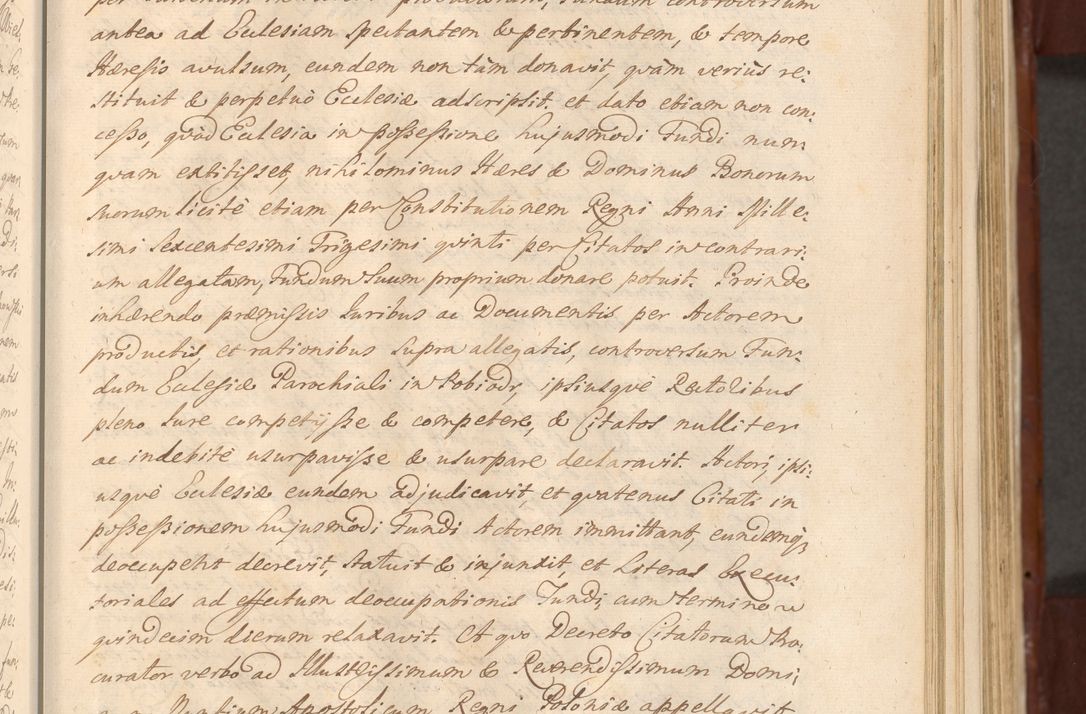 antea ad Ecclesiam spectantem & pertinentem, & tempore
Hæresis avulsum, eundem non tàm donavit, quàm veriùs re:
stituit & perpetuò Ecclesiæ adscripsit. et dato etiam non con:
cesso, quòd Ecclesia in possessione hujusmodi Fundi num:
quam extitisset, nihilominus Hæres & Dominus Bonorum
suorum licitè etiam per Constitutionem Regni Anni Mille:
simi Sexcentesimi Trigesimi quinti per Citatos in contrari:
um allegatam, Fundum suum proprium donare potuit. Proinde
inhærendo præmissis Iuribus ac Documentis per Actorem
productis, et rationibus supra allegatis, controversum Fun:
dum Ecclesiæ Parochiali in Pobiedr, ipsiusquè Rectoribus
pleno Iure competijsse & competere, & Citatos nulliter
ac indebitè usurpavisse & usurpare declaravit. Actori, ipsi:
usquè Ecclesiæ eundem adjudicavit, et quatenus Citati in
possessionem hujusmodi Fundi Actorem immittant, eundemq;
deoccupent decrevit, statuit & injunxit, et Literas Execu:
toriales ad effectum deoccupationis Fundi, cum termino
quindecim dierum relaxavit. A quo Decreto Citatorum Pro:
curator verbo ad Illustrissimum & Reverendissimum Domi:
Nuntium Apostolicum Regni Poloniæ appellavit